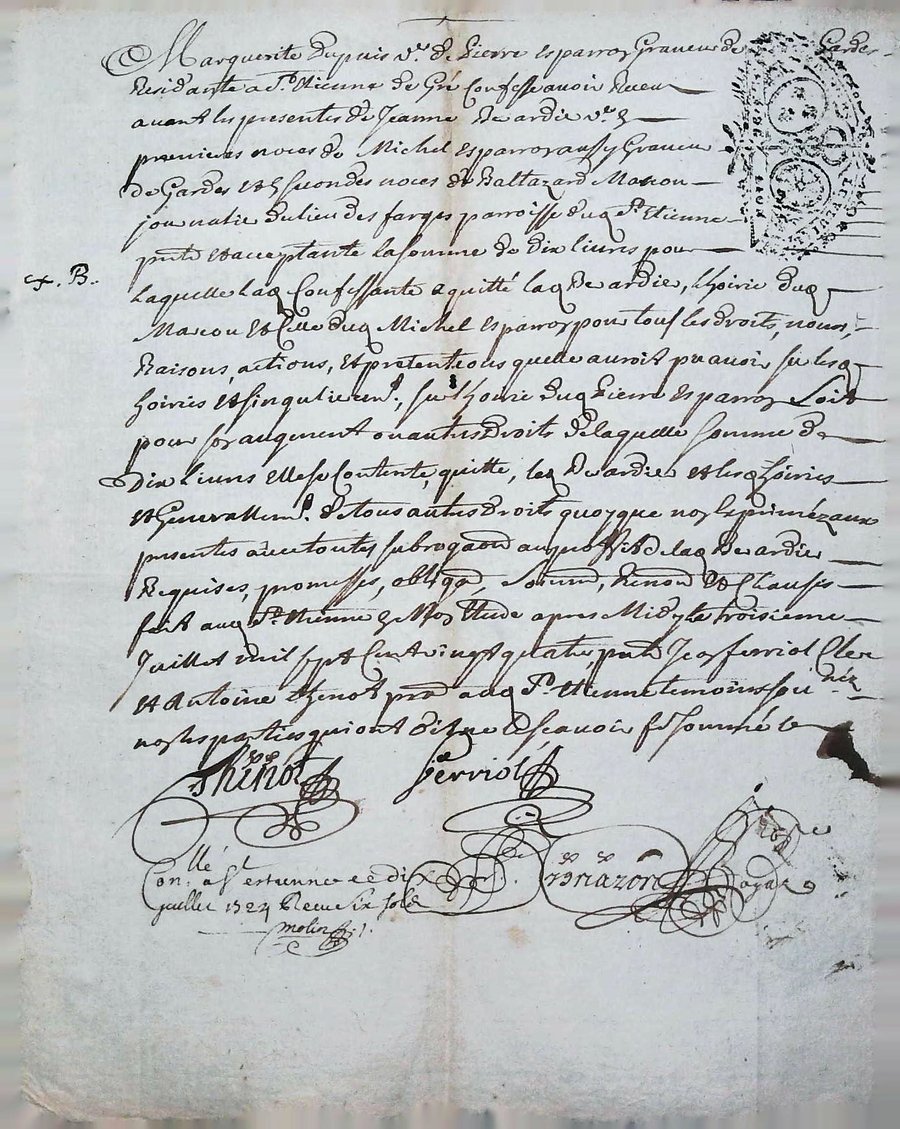 Marguerite Dupuis v.e de Pierre Esparron Graveur de Gardes
Residante a S.t Etienne de Gré Confesse avoir Receu
avant les presentes de Jeanne Deardie v.e
premieres noces de Michel Esparron aussy Graveur
de Gardes et secondes noces de Baltazard Marcou
natif du lieu des farges parroisse dud S.t Etienne
pnte et acceptante la somme de dix livres pour
+. B.
laquelle lad Confessante a quitté lad Deardie, l'hoirie dud
Marcou et Celle dud Michel Esparron pour tous les droits, noms,
Raisons, actions, et pretentions quelle auroit pu avoir sur lesd
hoiries et singulierem.t, sur l'hoirie dud Pierre Esparron Soit
pour son augment ou autres Droits de laquelle somme de
Dix livres elle se Contente, quitte, lad Deardie et lesd hoiries
et Generallem.t de tous autres Droits quoyque non Expriméz aux
presentes avec toutes subrogaon au proffit de lad Deardie
Requises, promesses, obligaon, Renon et Clauses
fait aud S.t Etienne Mon Etude apres Midy le troisieme
Juillet mil sept Cent vingt quatre pnts Jean ferriol Clerc
et Antoine thenot prat aud S.t Etienne temoins sou.nez
non les parties qui ont dit ne scavoir f. sommé et
Thenot Ferriol
Brazon
Con.llé a S.t estienne le di
juillet 1724 Receu six sols
molin